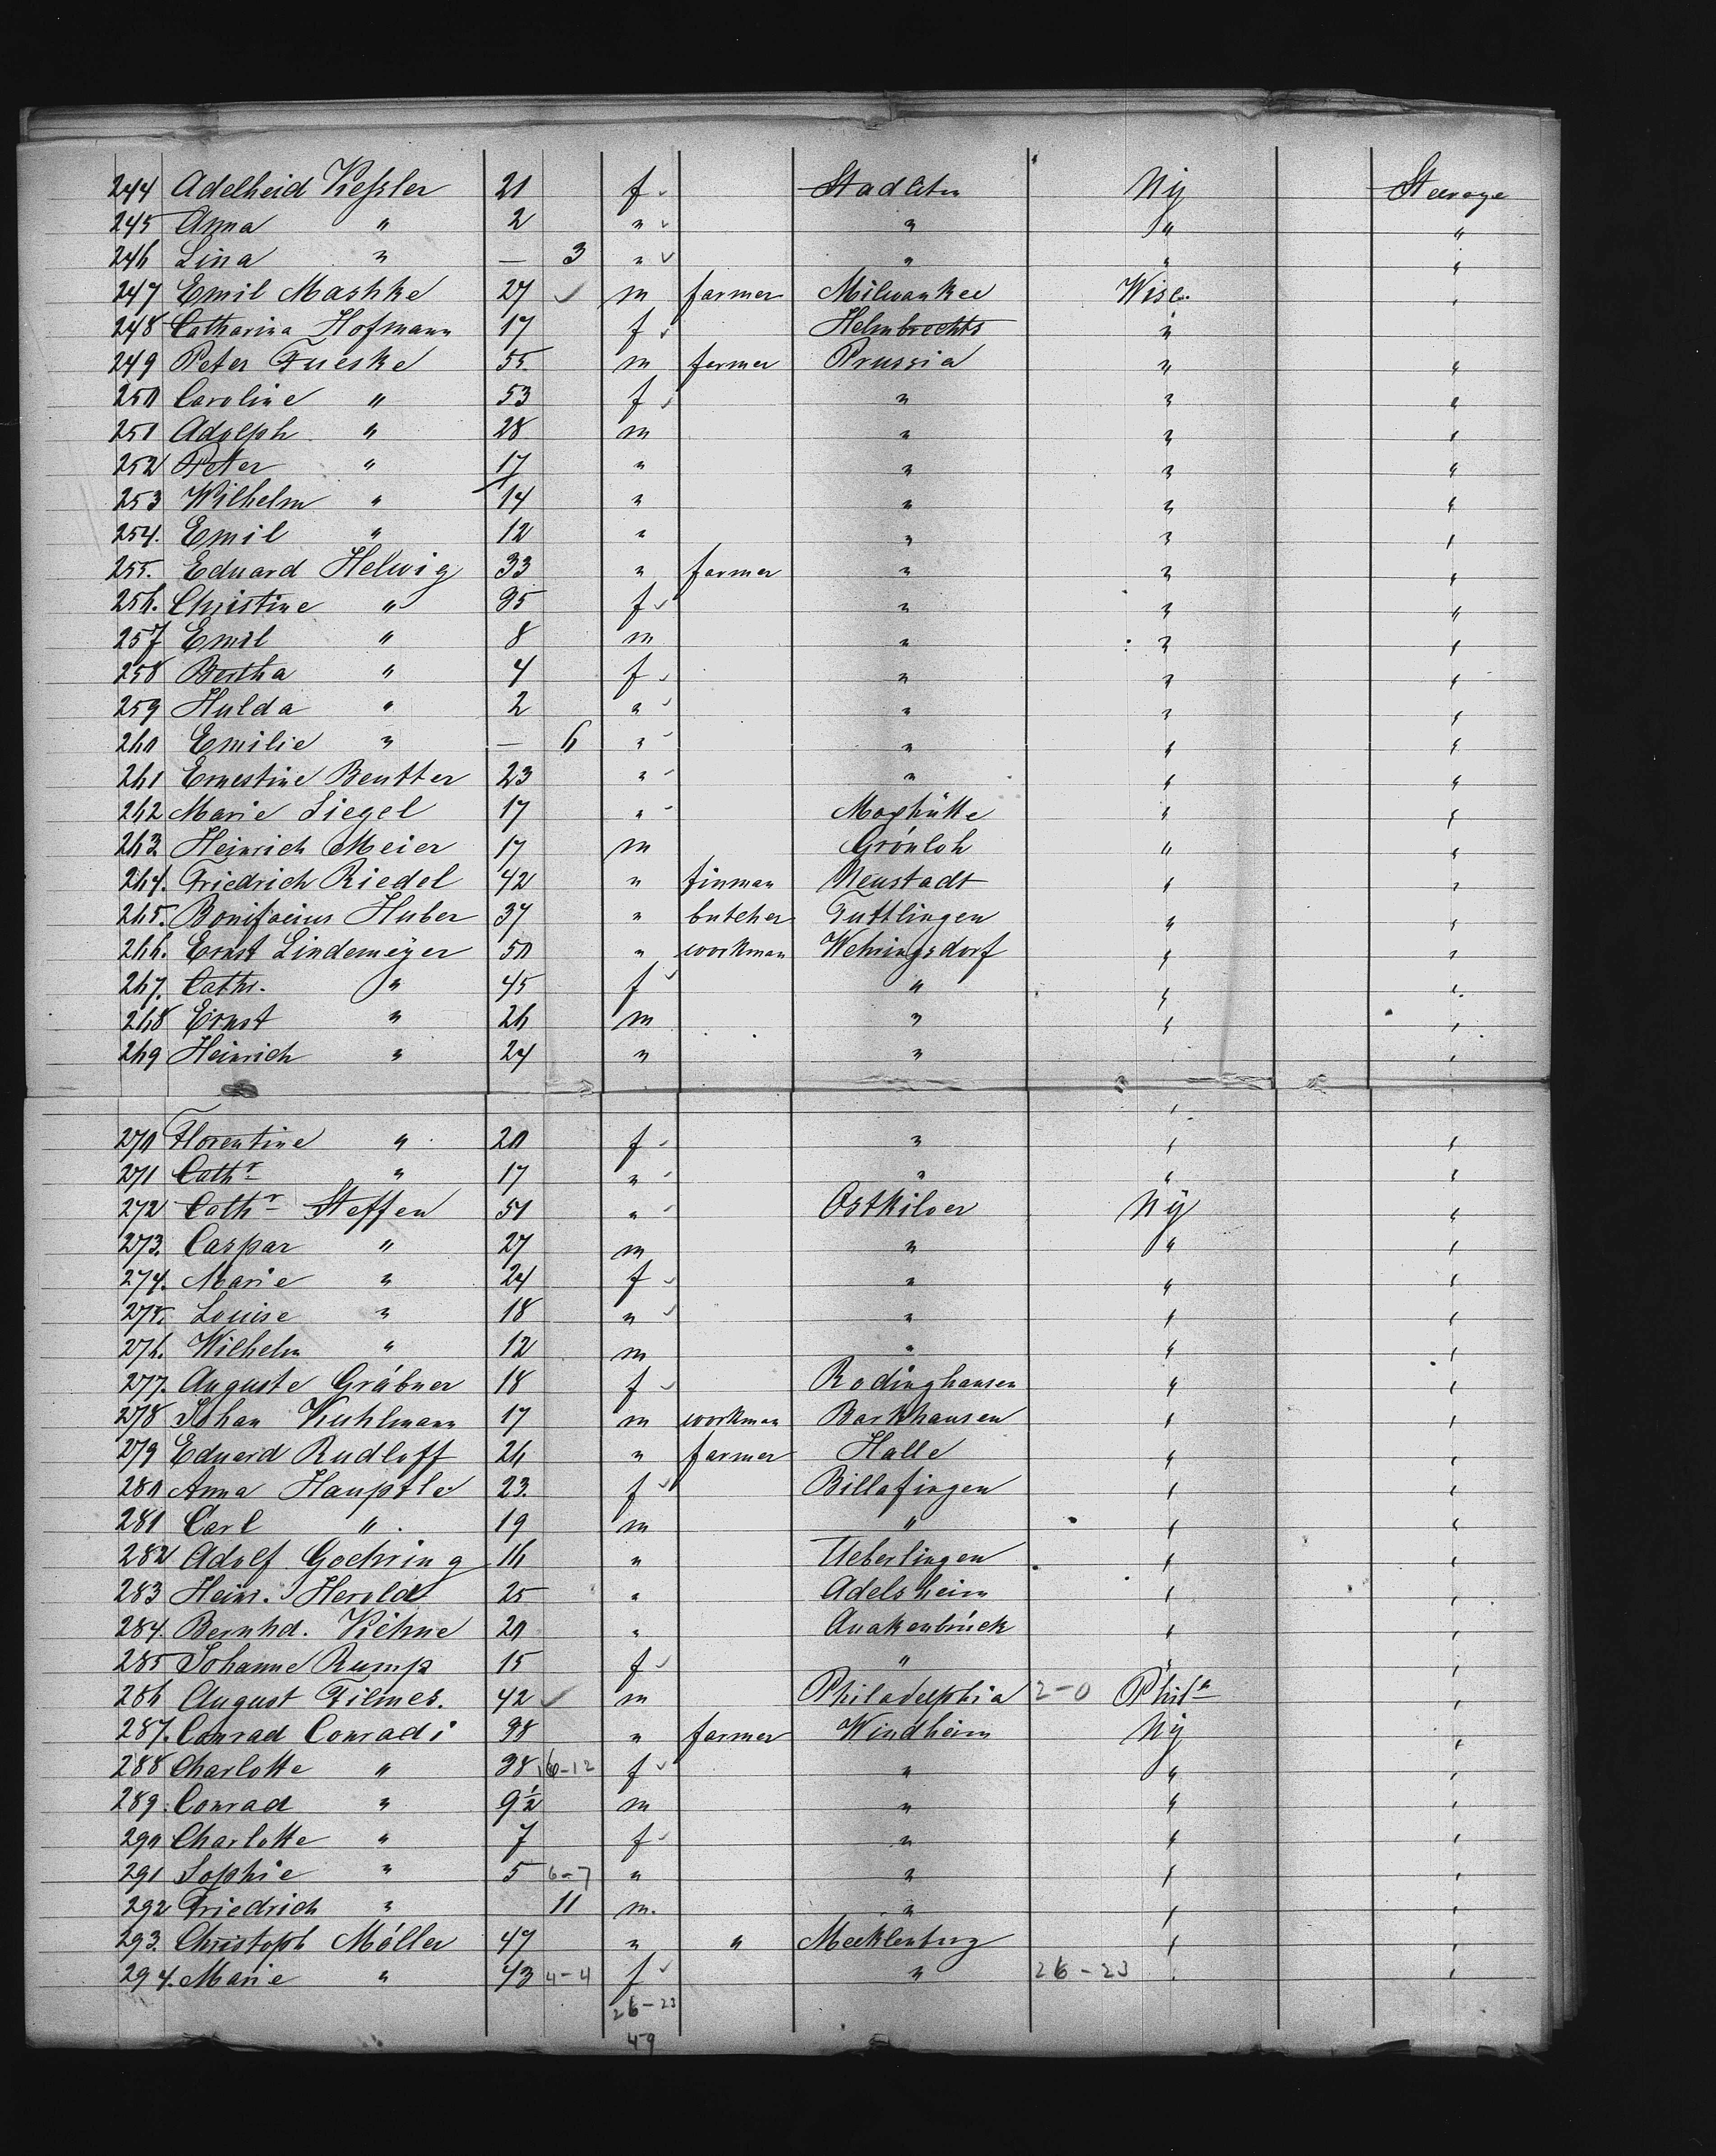 244 Adelheid Keßler 21 f Stadltn NY Steerage
245 Anna " 2 " " " "
246 Lina " — 3 " " " "
247 Emil Mashke 27 m farmer Milwaukee Wisc. "
248 Catharina Hofmann 17 f Helmbrechts "
249 Peter Fueske 55 m farmer Prussia " "
250 Caroline " 53 f " " "
251 Adolph " 28 m " " "
252 Peter " 17 " " " "
253 Wilhelm " 14 " " " "
254. Emil " 12 " " " "
255. Eduard Helwig 33 " farmer " " "
256. Christine " 35 f " " "
257 Emil " 8 m " " "
258 Bertha " 4 f " " "
259 Hulda " 2 " " " "
260 Emilie " — 6 " " " "
261 Ernestine Beutter 23 " " " "
262 Marie Siegel 17 " Maxhütte " "
263 Heinrich Meier 17 m Grönloh " "
264. Friedrich Riedel 42 " tinman Neustadt " "
265. Bonifacius Huber 37 " butcher Tuttlingen " "
266. Ernst Lindemeyer 50 " workman Wehringsdorf " "
267. Cathr. " 45 f " " "
268 Ernst " 26 m " " "
269 Heinrich " 24 " " "
270 Florentine " 20 f " " "
271 Cathr " 17 " " " "
272 Cathr Steffen 51 " Ostkilver NY "
273. Caspar " 27 m " " "
274. Marie " 24 f " " "
275. Louise " 18 " " " "
276. Wilhelm " 12 m " " "
277. Auguste Gräbner 18 f Rodinghausen " "
278 Johan Kuhlmann 17 m workman Barkhausen " "
279 Eduard Rudloff 26 " farmer Halle " "
280 Anna Hauptle 23. f Billafingen " "
281 Carl " 19 m " " "
282 Adolf Goehring 16 " Ueberlingen " "
283 Heinr. Herold 25 " Adelsheim " "
284. Bernhd. Kiehne 20 " Quakenbrück " "
285 Johanne Rump 15 f " " "
286 August Filmer. 42 m Philadelphia 2-0 Phila "
287. Conrad Conradi 38 " farmer Windheim NY "
288 Charlotte " 38 6-12 f " " "
289. Conrad " 9½ m " " "
290 Charlotte " 7 f " " "
291 Sophie " 5 6-7 " " " "
292 Friedrich " 11 m. " " "
293. Christoph Möller 47 " " Mecklenburg " "
294. Marie " 43 4-4 f " 26-23 "
26-23
49